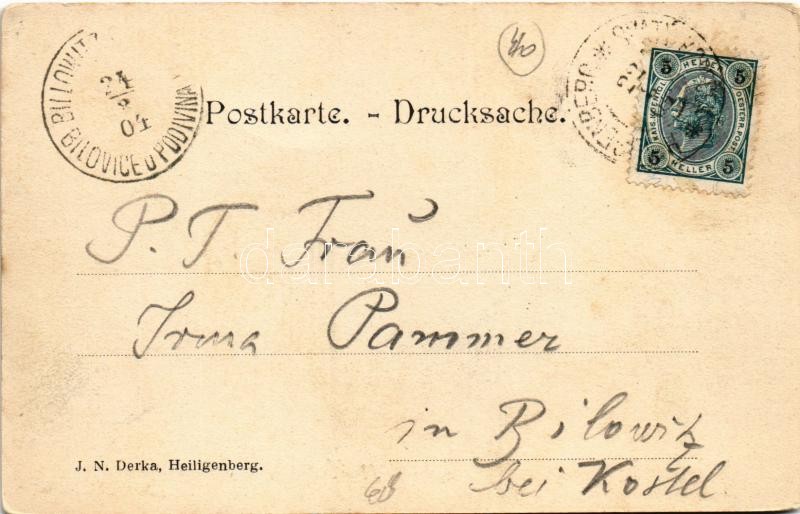 BILLOWITZ
24
8
04
BILOVICE U PODIVINA
40
Postkarte. - Drucksache.
5 HELLER 5
KAIS. KOENIGL. OESTERR. POST
5 HELLER 5
P. T. Frau
Irma Pammer
in Bilowitz
bei Kostel.
J. N. Derka, Heiligenberg.
darabanth